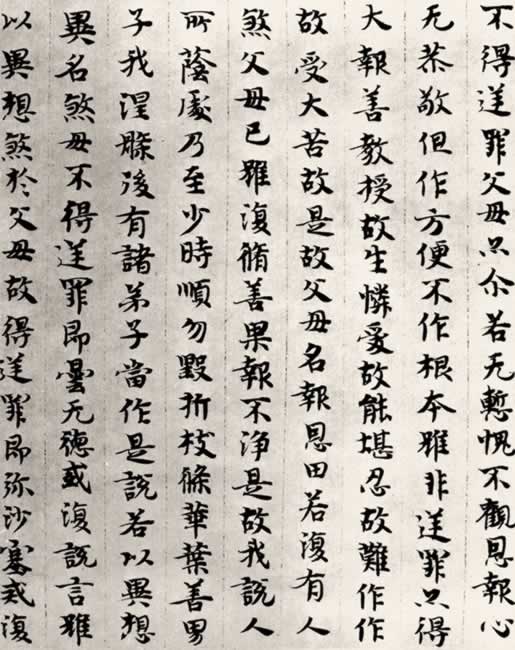 不得逆罪父母亦尒若无慙愧不觀恩報心
无恭敬但作方便不作根本雖非逆罪亦得
大報善教授故生憐愛故能堪忍故難作作
故受大苦故是故父母名報恩田若復有人
煞父母已雖復脩善果報不淨是故我說人
所蔭處乃至少時順勿毀折枝條華葉善男
子我涅槃後有諸弟子當作是說若以異想
異名煞母不得逆罪即曇无德或復說言雖
以異想煞於父母故得逆罪即弥沙塞或復